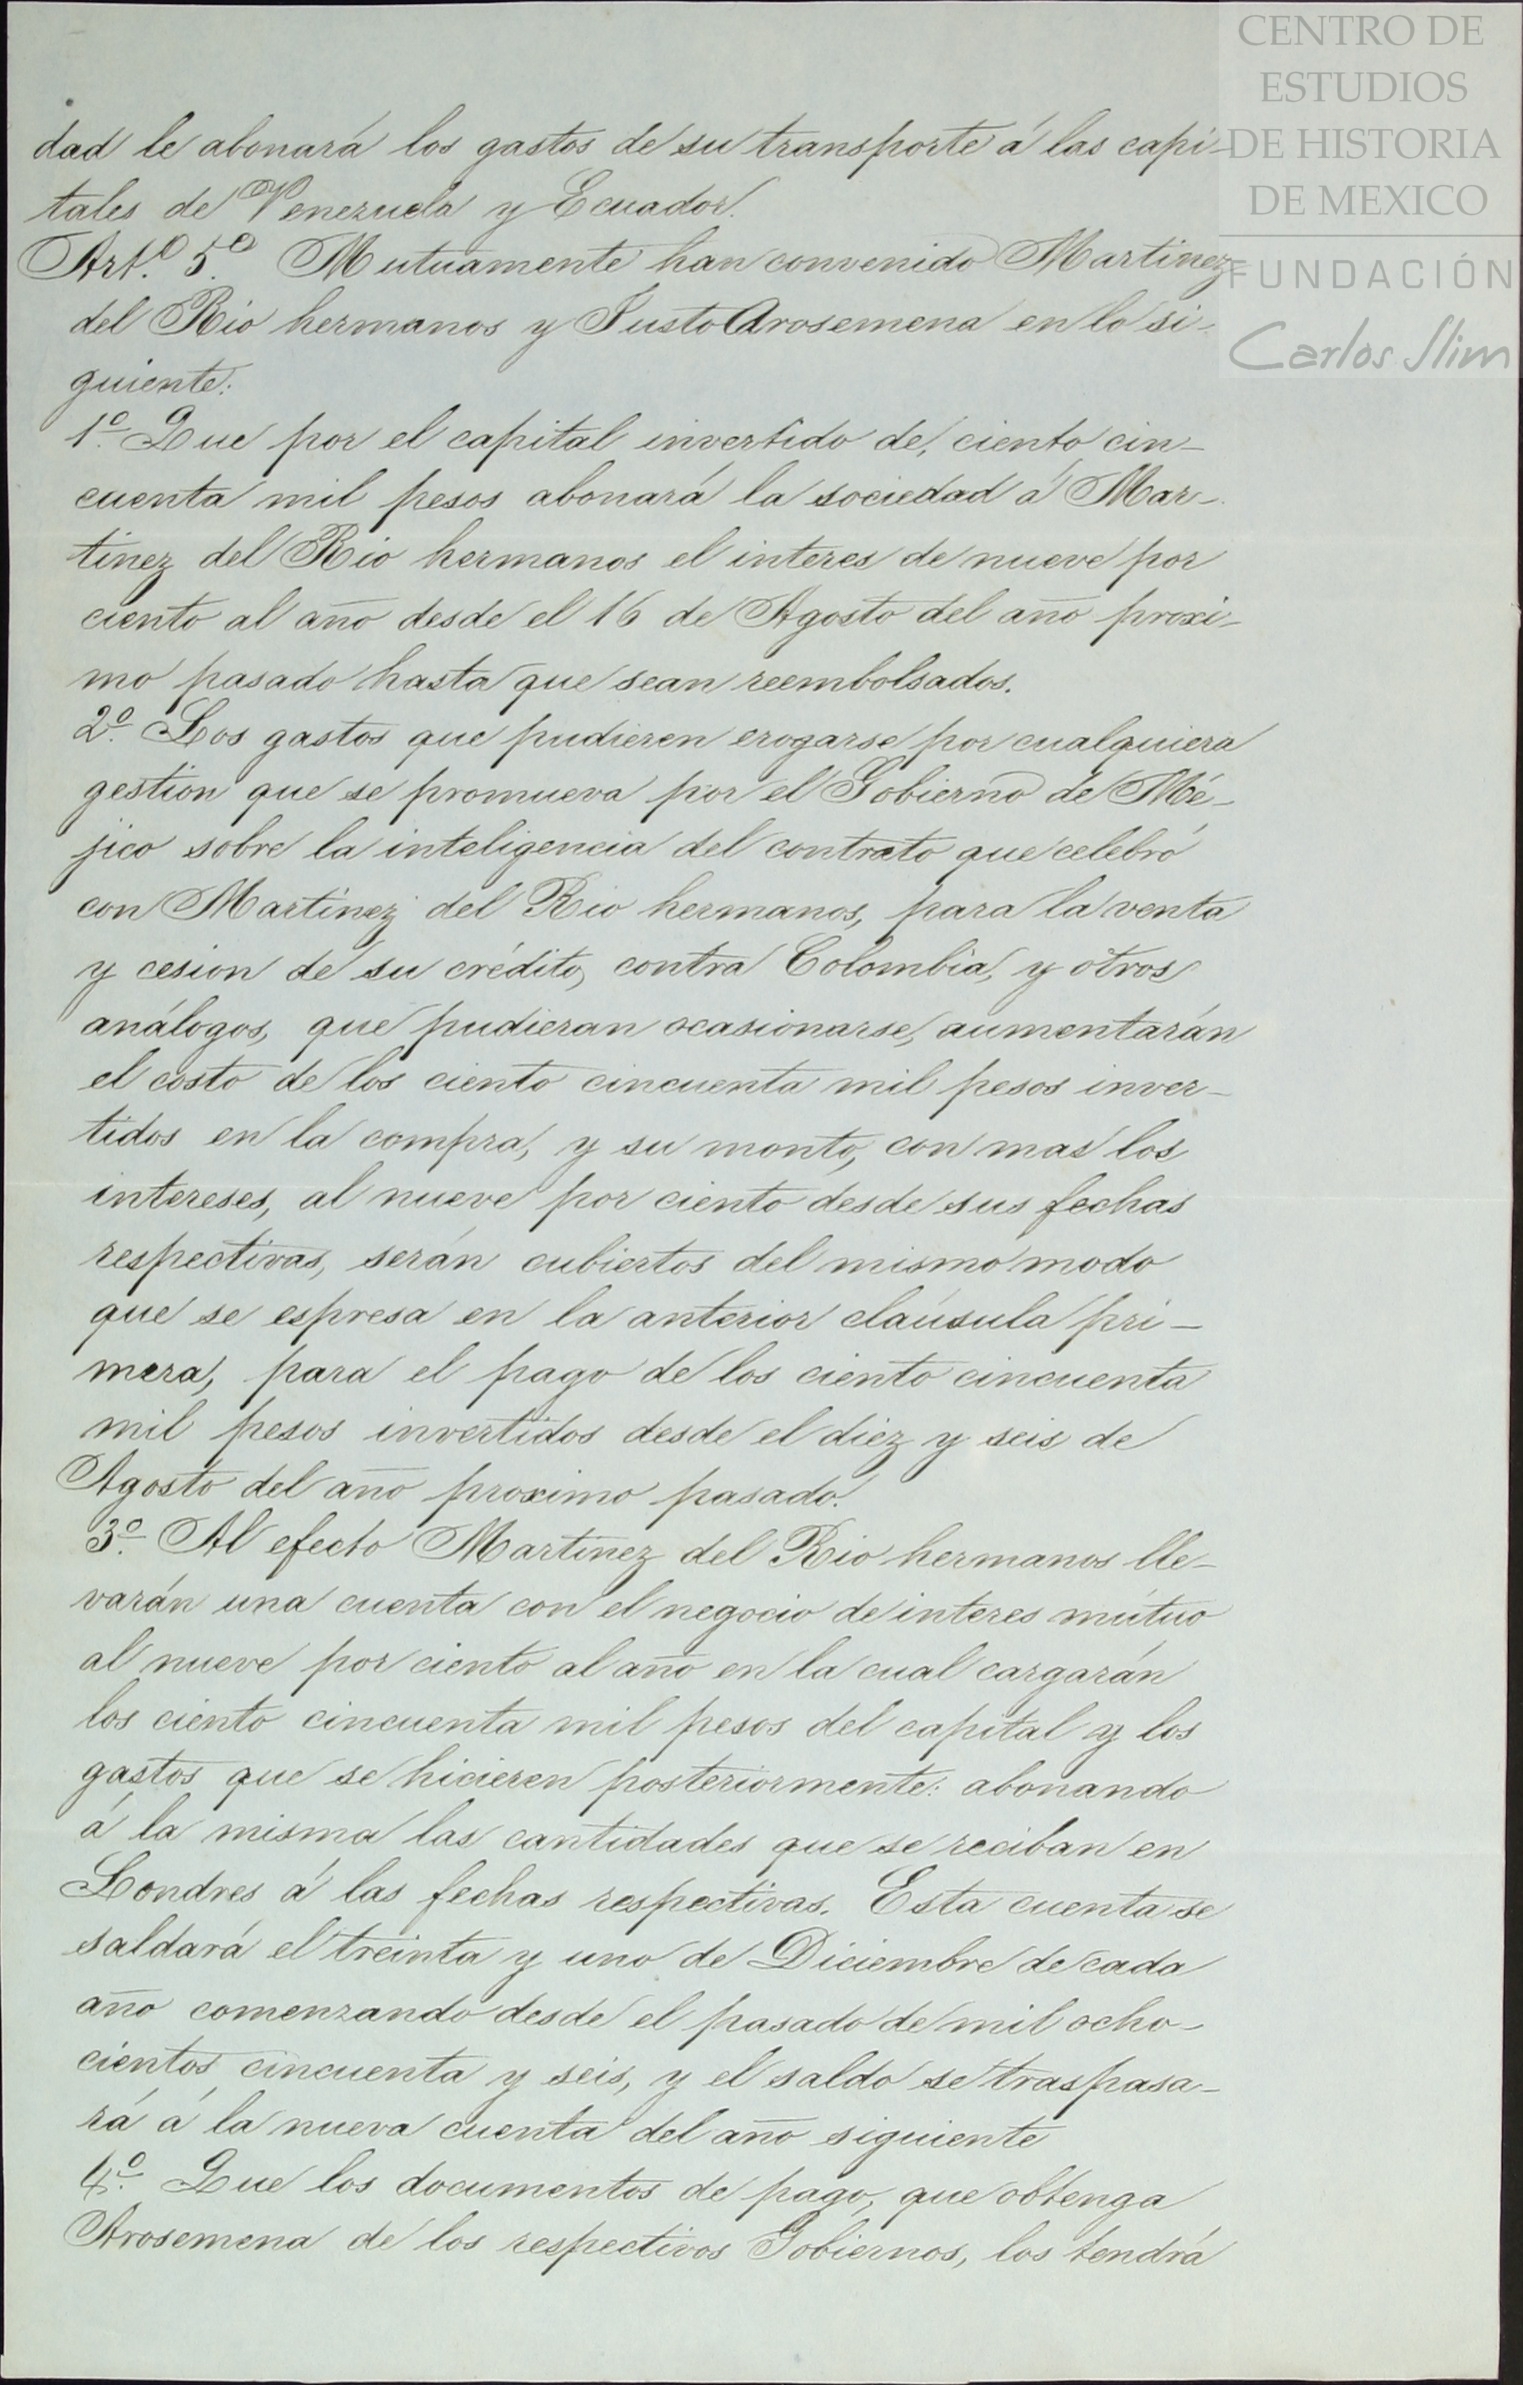 CENTRO DE
ESTUDIOS
DE HISTORIA
DE MEXICO
FUNDACIÓN
Carlos Slim
dad le abonará los gastos de su transporte á las capi-
tales de Venezuela y Ecuador.
Art.º 5.º Mutuamente han convenido Martinez
del Rio hermanos y Justo Arosemena en lo si-
guiente:
1º. Que por el capital invertido de, ciento cin-
cuenta mil pesos abonará la sociedad á Mar-
tinez del Rio hermanos el interes de nueve por
ciento al año desde el 16 de Agosto del año proxi-
mo pasado hasta que sean reembolsados.
2º. Los gastos que pudieren erogarse por cualquiera
gestion que se promueva por el Gobierno de Mé-
jico sobre la inteligencia del contrato que celebró
con Martinez del Rio hermanos, para la venta
y cesion de su crédito, contra Colombia, y otros
análogos, que pudieran ocasionarse, aumentarán
el costo de los ciento cincuenta mil pesos inver-
tidos en la compra, y su monto, con mas los
intereses, al nueve por ciento desde sus fechas
respectivas, serán cubiertos del mismo modo
que se espresa en la anterior claúsula pri-
mera, para el pago de los ciento cincuenta
mil pesos invertidos desde el diez y seis de
Agosto del año proximo pasado.
3º. Al efecto Martinez del Rio hermanos lle-
varán una cuenta con el negocio de interes mútuo
al nueve por ciento al año en la cual cargarán
los ciento cincuenta mil pesos del capital y los
gastos que se hicieren posteriormente: abonando
á la misma las cantidades que se reciban en
Londres á las fechas respectivas. Esta cuenta se
saldará el treinta y uno de Diciembre de cada
año comenzando desde el pasado de mil ocho-
cientos cincuenta y seis, y el saldo se traspasa-
rá á la nueva cuenta del año siguiente
4º. Que los documentos de pago, que obtenga
Arosemena de los respectivos Gobiernos, los tendrá